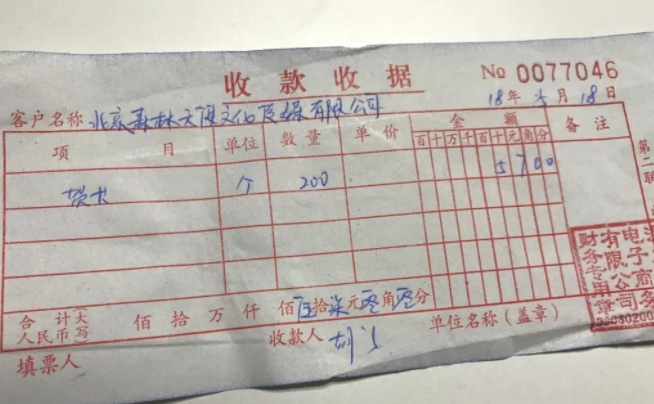 收款收据
№ 0077046
18年 月18日
客户名称 北京森林 文化 有限公司
项目 单位 数量 单价 金额 备注
百十万千百十元角分
贺卡 个 200 5700
第二联
财务专用章 有限公司 电子商务
合计大写人民币 佰拾万仟佰伍拾柒元零角零分
填票人 收款人 单位名称(盖章)